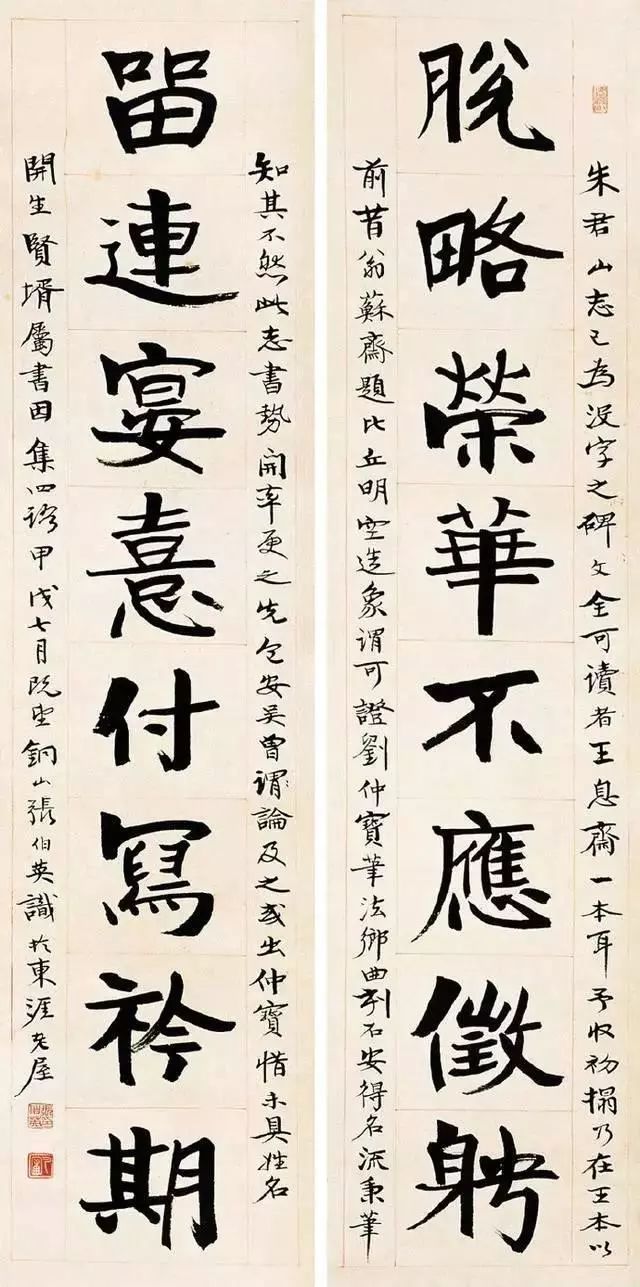 朱君山志已為沒字之碑文全可讀者王息齋一本耳予收初搨乃在王本以
脫略榮華不應徵聘
前昔翁蘇齋題比丘明空造象謂可證劉仲寶筆法鄉曲刻石安得名流秉筆
知其不然此志書勢開率更之先包安吴曾謂論及之或出仲寶惜未具姓名
㽞連宴憙付寫衿期
開生賢壻屬書因集四語甲戌七月既望銅山張伯英識於東涯老屋